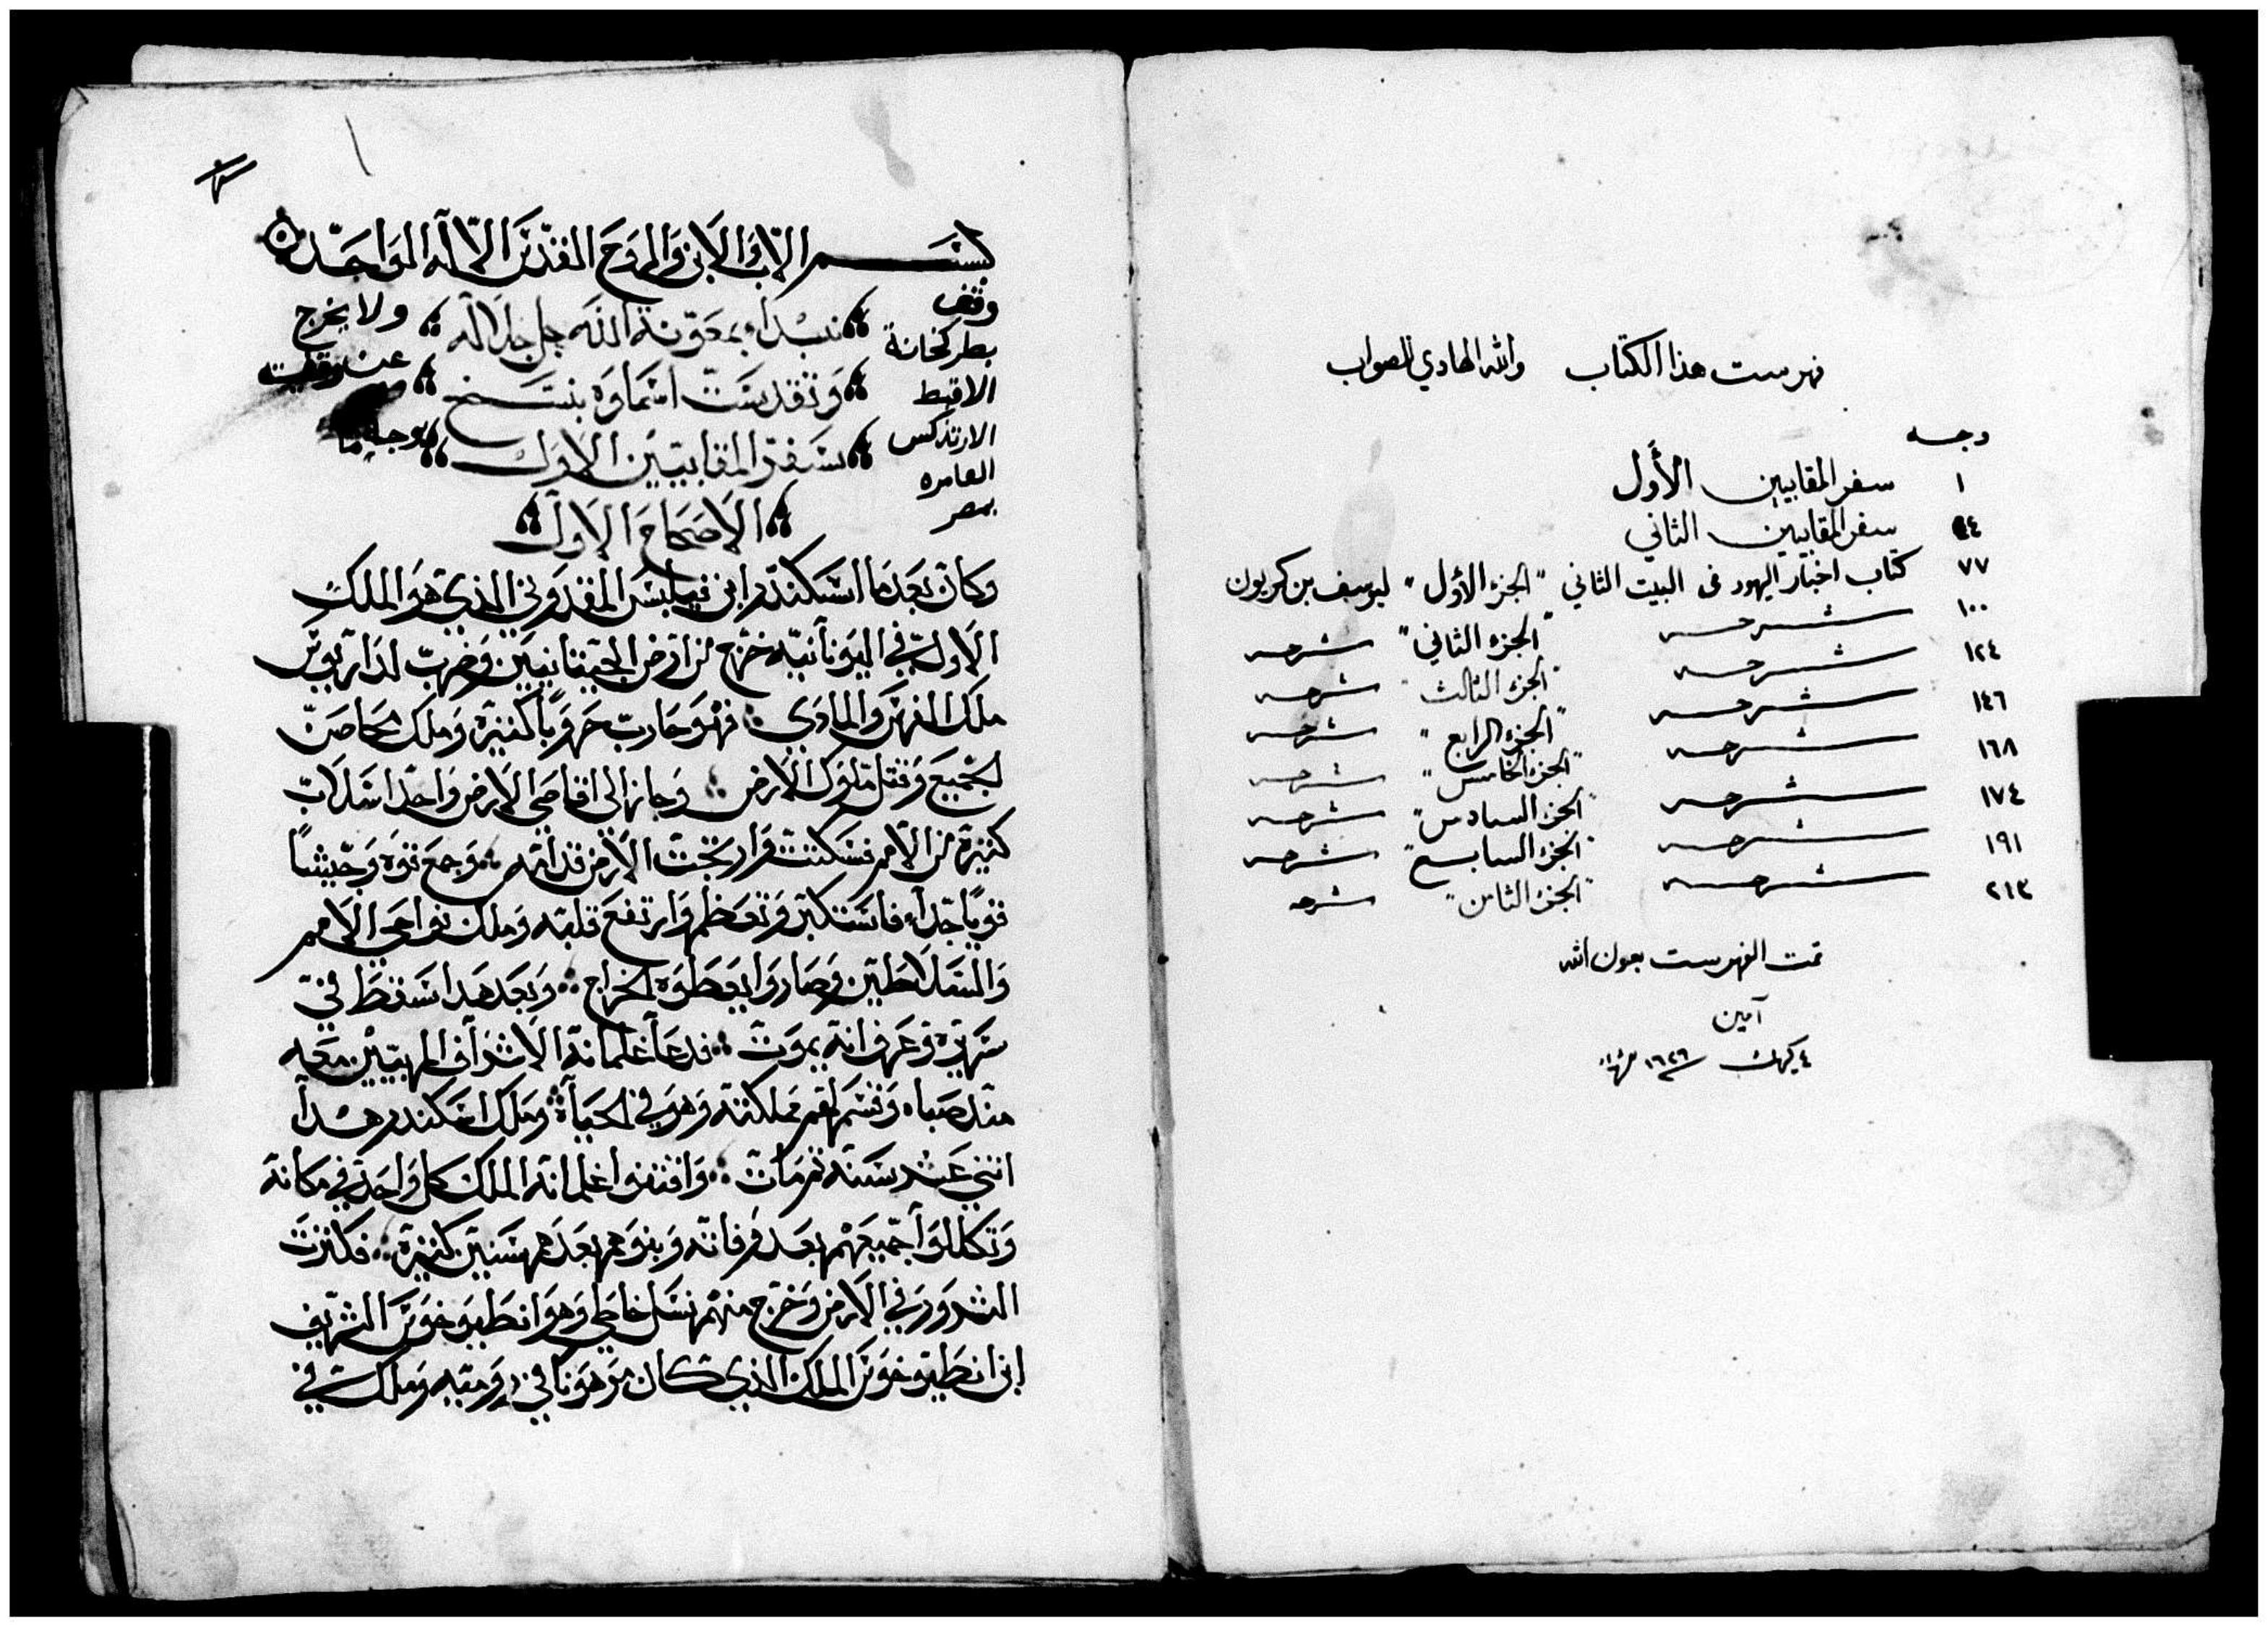 فهرست هذا الكتاب والله الهادي للصواب
وجه
١ سفر المقابيين الأول
٤٤ سفر المقابيين الثاني
٧٧ كتاب اخبار اليهود فى البيت الثاني "الجزء الأول" ليوسف بن كريون
١٠٠ شرحه "الجزء الثاني" شرحه
١٢٤ شرحه "الجزء الثالث" شرحه
١٤٦ شرحه "الجزء الرابع" شرحه
١٦٨ شرحه "الجزء الخامس" شرحه
١٧٤ شرحه "الجزء السادس" شرحه
١٩١ شرحه "الجزء السابع" شرحه
٢١٣ شرحه "الجزء الثامن" شرحه
تمت الفهرست بعون الله
آمين
٤ كيهك ١٦٢٦
١
بسم الاب والابن والروح القدس الالاه الواحد
نبداء بمعونة الله جل جلاله
وتقدست اسماوه بنسخ
سفر المقابيين الاول
الاصحاح الاول
وقف
بطركخانة
الاقبط
الارتدكس
العامره
بمصر
ولا يخرج
عن
وكان بعدما اسكندر ابن فيلبس المقدوني الذي هو الملك
الاول في اليونانيه خرج من ارض الجيتانيين وضرب لداريوس
ملك الفرس والمادي فهو حارب حروبا كثيرة وملك محاصن
لجميع وقتل ملوك الارض وجاز الى اقاصي الارض واخذ اسلاب
كثيرة من الامم فسكتت وارتجت الارض قدامه وجمع قوه وجيشا
قويا جدا فاستكبر وتعظم وارتفع قلبه وملك نواحي الامم
والسلاطين وصاروا يعطوه الخراج وبعد هدا سقط في
سريره وعرف انه يموت فدعا غلمانه الاشراف المربيين معه
مند صباه وقسم لهم مملكته وهو في الحياة وملك اسكندر هدا
اثني عشر سنه ثم مات واقتفوا غلمانه الملك كل واحد في مكانه
وتكللوا جميعهم بعد وفاته وبنوهم بعدهم سنين كثيرة فكثرت
الشرور في الارض وخرج منهم نسل خاطي وهو انطيوخوس الشريف
ابن انطيوخوس الملك الذي كان مرهونا في روميه وملك في